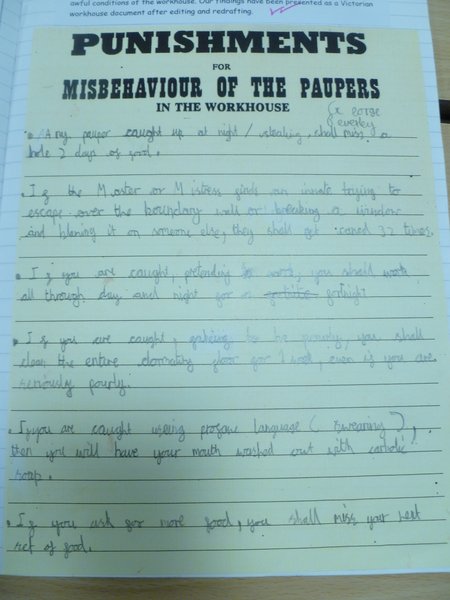 awful conditions of the workhouse. Our findings have been presented as a Victorian
workhouse document after editing and redrafting.
PUNISHMENTS
FOR
MISBEHAVIOUR OF THE PAUPERS
IN THE WORKHOUSE
George
everley
• Any pauper caught up at night / stealing, shall miss a
hole 2 days of food.
• If the Master or Mistress finds an inmate trying to
escape over the boundary wall or breaking a window
and blaming it on someone else, they shall get caned 32 times.
• If you are caught, pretending to work, you shall work
all through day and night for a fortnight
• If you are caught, to be pourly, you shall
clean the entire dormatry floor for 1 week, even if you are
seriously pourly.
• If you are caught useing profane language ( swearing ),
then you will have your mouth washed out with carbolic
soap.
• If you ask for more food, you shall miss your next
of food.